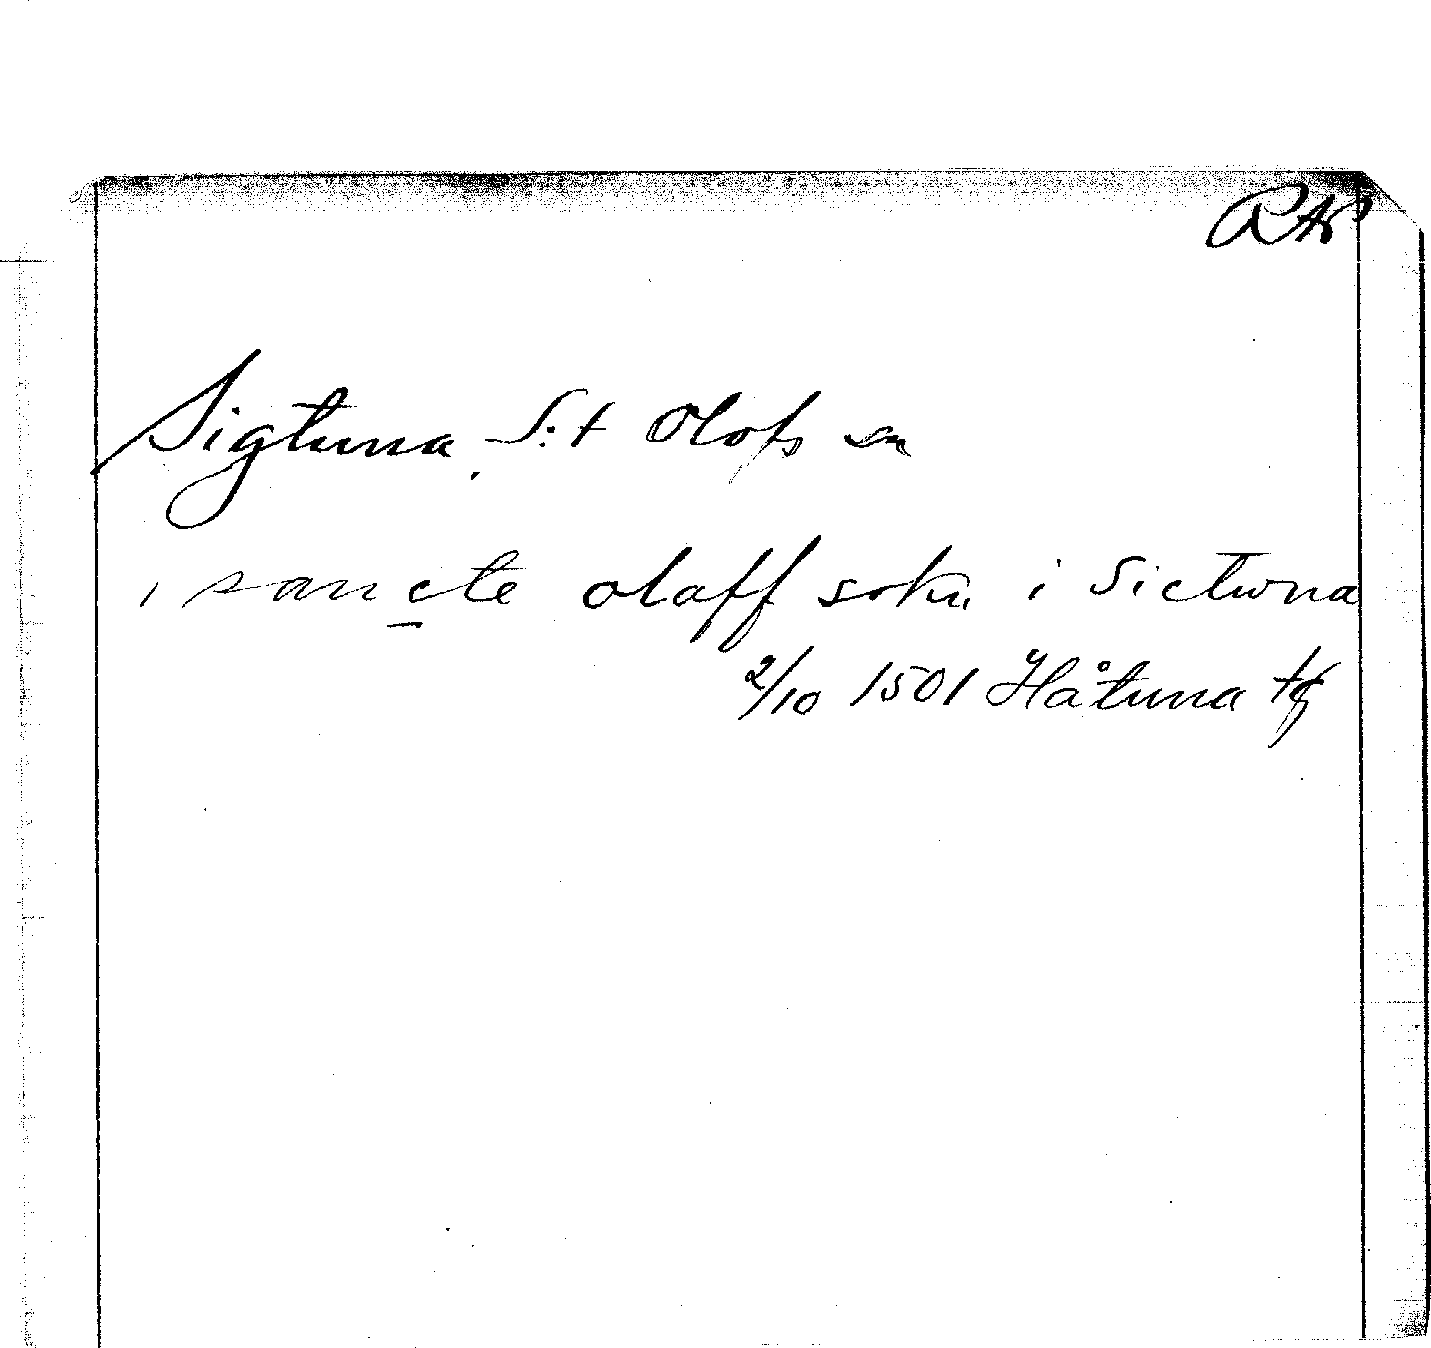 RAP
Sigtuna S:t Olofs sn
i sancte olaff sokn i Sictwna
2/10 1501 Håtuna